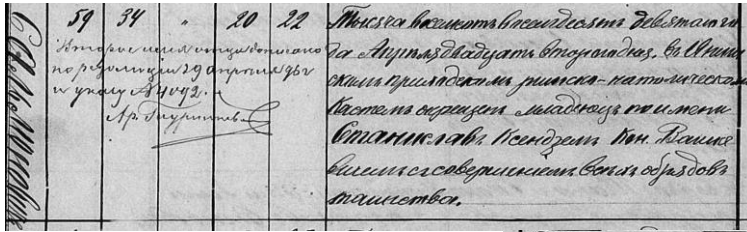 59 34 " 20 22
Второе имя отца дописано
по резолюции 29 апреля 96 г
и указу № 4092.
Тысяча восемьсотъ восемьдесятъ девятаго го
да Апрѣля двадцать втораго дня, въ
скомъ приходскомъ римско-католическомъ
Костелѣ окрещенъ младенецъ по имени
Станиславъ Ксендзомъ Кон. Вашке
вичемъ съ совершеніемъ всѣхъ обрядовъ
таинства.